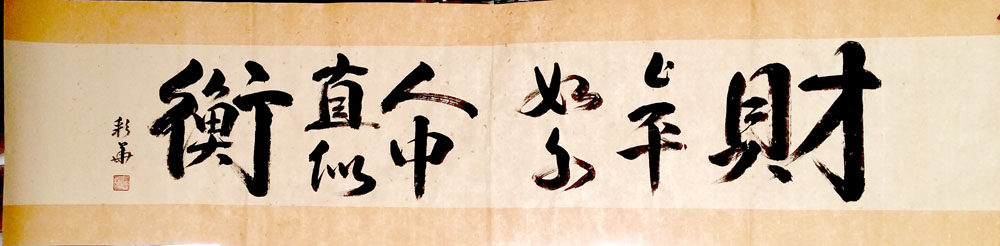 財
上平
如水
人中
直似
衡
彩華